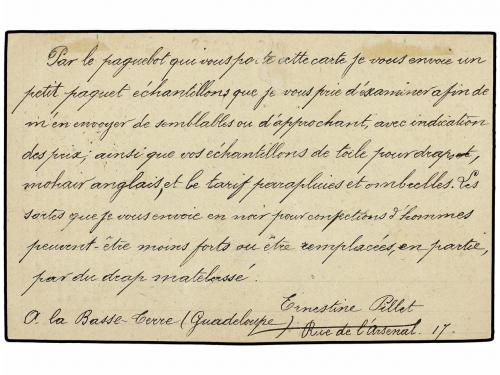 Par le paquebot qui vous porte cette carte je vous envoie un
petit paquet échantillons, que je vous prie d'examiner afin de
m'en envoyer de semblables ou d'approchant, avec indication
des prix; ainsi que vos échantillons de toile pour draps,
mohair anglais, et le tarif parapluies et ombrelles. Les
sortes que je vous envoie en noir pour confections d'hommes
peuvent-être moins forts ou être remplacées, en partie,
par du drap matelassé.
Ernestine Pillet
A la Basse-Terre (Guadeloupe) Rue de l'Arsenal. 17.